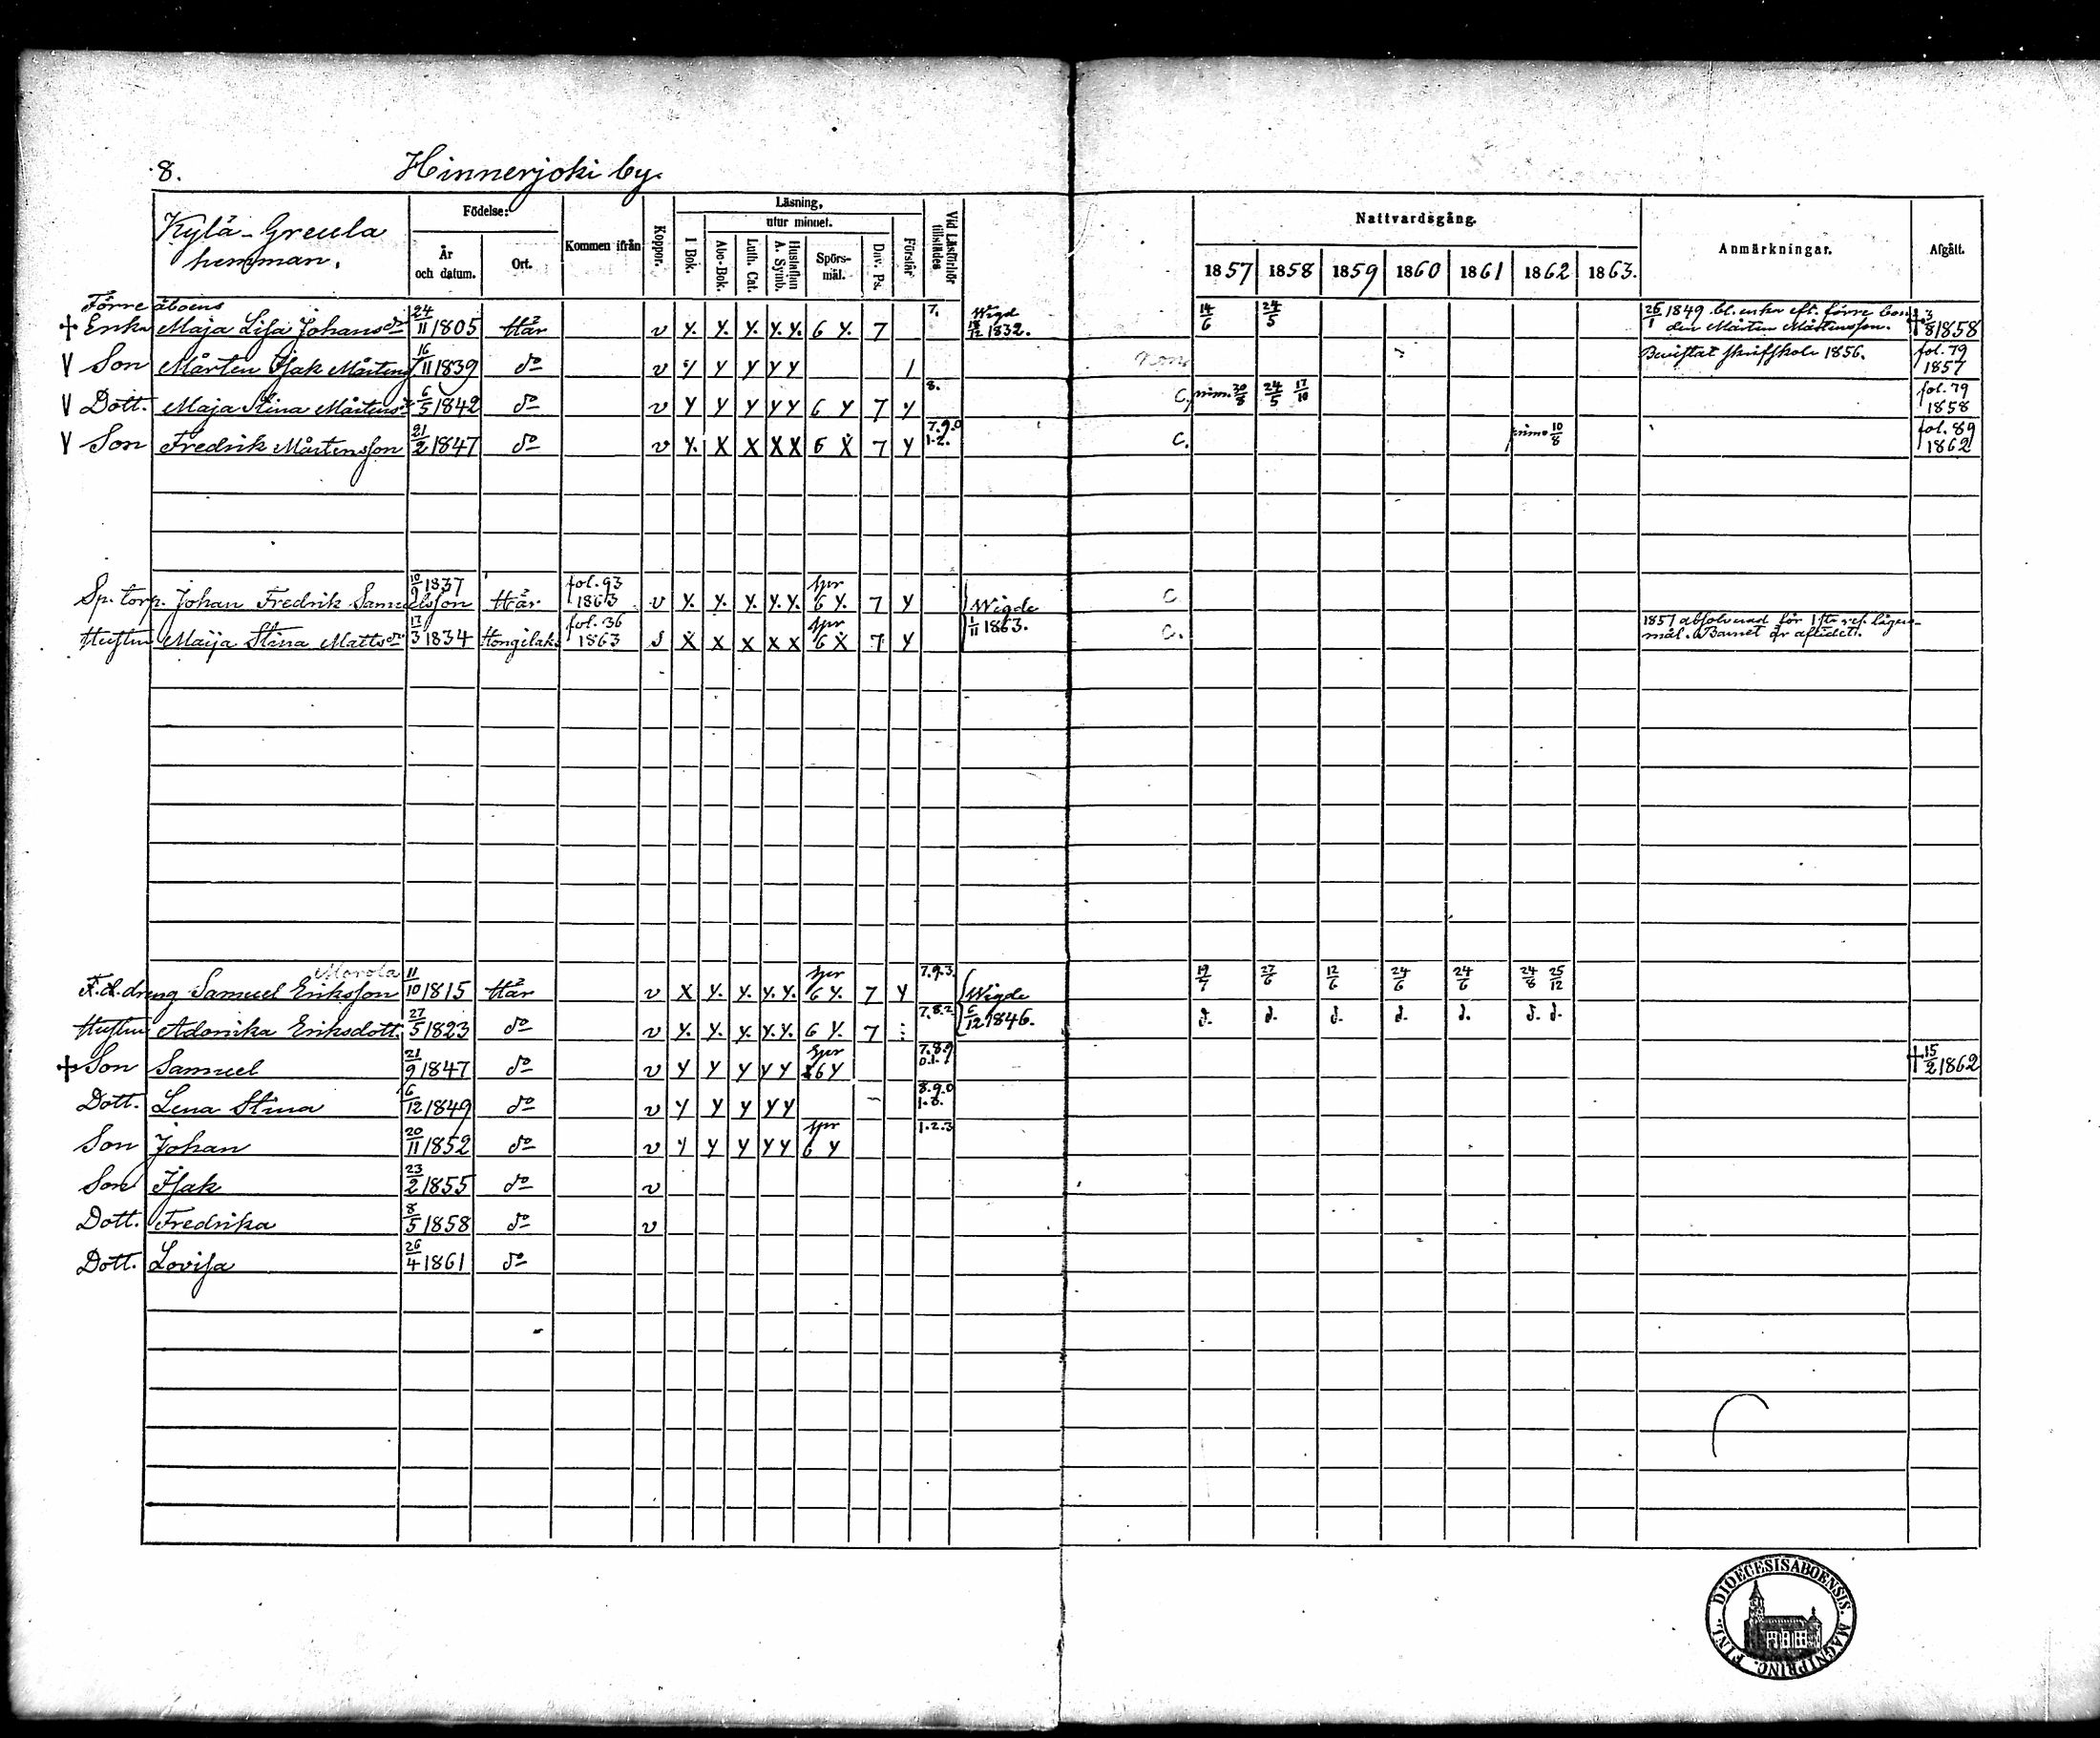 8. Hinnerjoki by.
Kylä-Greula hemman.
Födelse:
År och datum.
Ort.
Kommen ifrån
Koppor.
Läsning,
utur minnet.
I Bok.
Abc-Bok.
Luth. Cat.
Hustaflan A. Symb.
Spörs-mål.
Dav. Ps.
Förstår.
Vid Läsförhör tillstädes
Nattvardsgång.
1857 1858 1859 1860 1861 1862 1863.
Anmärkningar.
Afgått.
Förre åboens
+ Enka Maja Lisa Johansdr 24/11 1805 Här v y. y. y. y. y. 6 y. 7 7. Wigd 18/12 1832. 14/6 24/5 26/1 1849 bl. enka eft. förre bon-den Mårten Mårtensson. + 3/8 1858
V Son Mårten Isak Mårtens 16/11 1839 do v y y y y y / Bevistat skrifskola 1856. fol. 79 1857
V Dott. Maja Stina Mårtensdr 6/5 1842 do v y y y y y 6 y 7 y 8. C. 30/8 24/5 17/10 fol. 79 1858
V Son Fredrik Mårtensson 21/2 1847 do v y. x x x x 6 x 7 y 7.9.0 1.2. C. 10/8 fol. 89 1862
Sp. torp. Johan Fredrik Samuelsson 10/9 1837 Här fol. 93 1863 v y. y. y. y. y. spr 6 y. 7 y Wigde C
Hustru Maija Stina Mattsdr 17/3 1834 Hongilaks fol. 36 1863 s x x x x x spr 6 x 7 y 1/11 1863. C. 1857 absolverad för 1sta res. lägers-mål. Barnet är aflidet.
Morola
F.d. dreng Samuel Eriksson 11/10 1815 Här v x y. y. y. y. spr 6 y. 7 y 7.9.3. Wigde 19/7 27/6 12/6 24/6 24/6 24/8 25/12
Hustru Adonika Eriksdott. 27/5 1823 do v y. y. y. y. y. 6 y. 7 7.8.2 6/12 1846. d. d. d. d. d. d. d.
+ Son Samuel 21/9 1847 do v y y y y y spr 6 y 7.8.9 0.1. + 15/2 1862
Dott. Lena Stina 6/12 1849 do v y y y y y 8.9.0
Son Johan 20/11 1852 do v y y y y y spr 6 y 1.2.3
Son Isak 23/2 1855 do v
Dott. Fredrika 8/5 1858 do v
Dott. Lovisa 26/4 1861 do
DIOECESIS ABOENSIS. MAGNI PRINC. FINL.